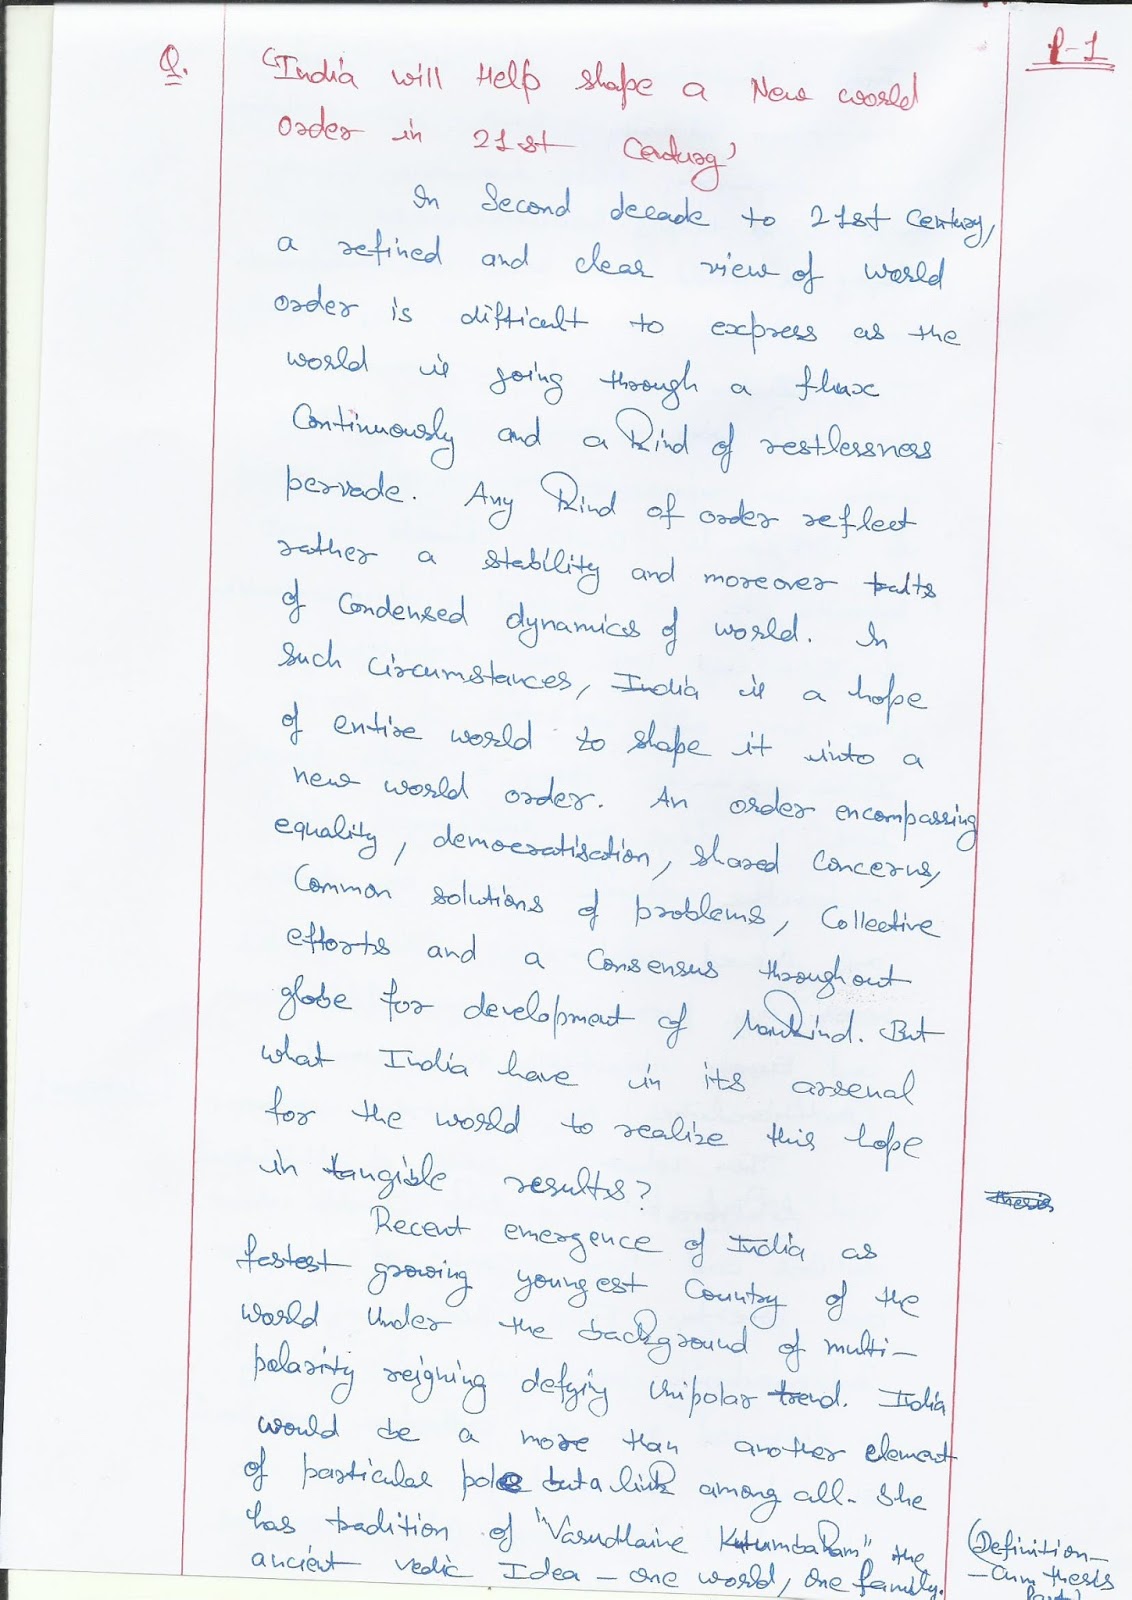 P-1
Q. 'India will Help shape a New world
order in 21st Century'
In Second decade to 21st Century,
a refined and clear view of world
order is difficult to express as the
world is going through a flux
Continuously and a kind of restlessness
pervade. Any kind of order reflect
rather a stability and moreover
of condensed dynamics of world. In
such circumstances, India is a hope
of entire world to shape it into a
new world order. An order encompassing
equality, democratisation, shared concerns,
Common solutions of problems, Collective
efforts and a Consensus throughout
globe for development of Mankind. But
what India have in its arsenal
for the world to realize this hope
in tangible results?
Recent emergence of India as
fastest growing youngest Country of the
world Under the background of multi-
polarity reigning defying Unipolar trend. India
would be a more than another element
of particular pole but a link among all. She
has tradition of "Vasudhaive Kutumbakam" the
ancient vedic Idea - one world, one family.
(Definition-
-Cum thesis